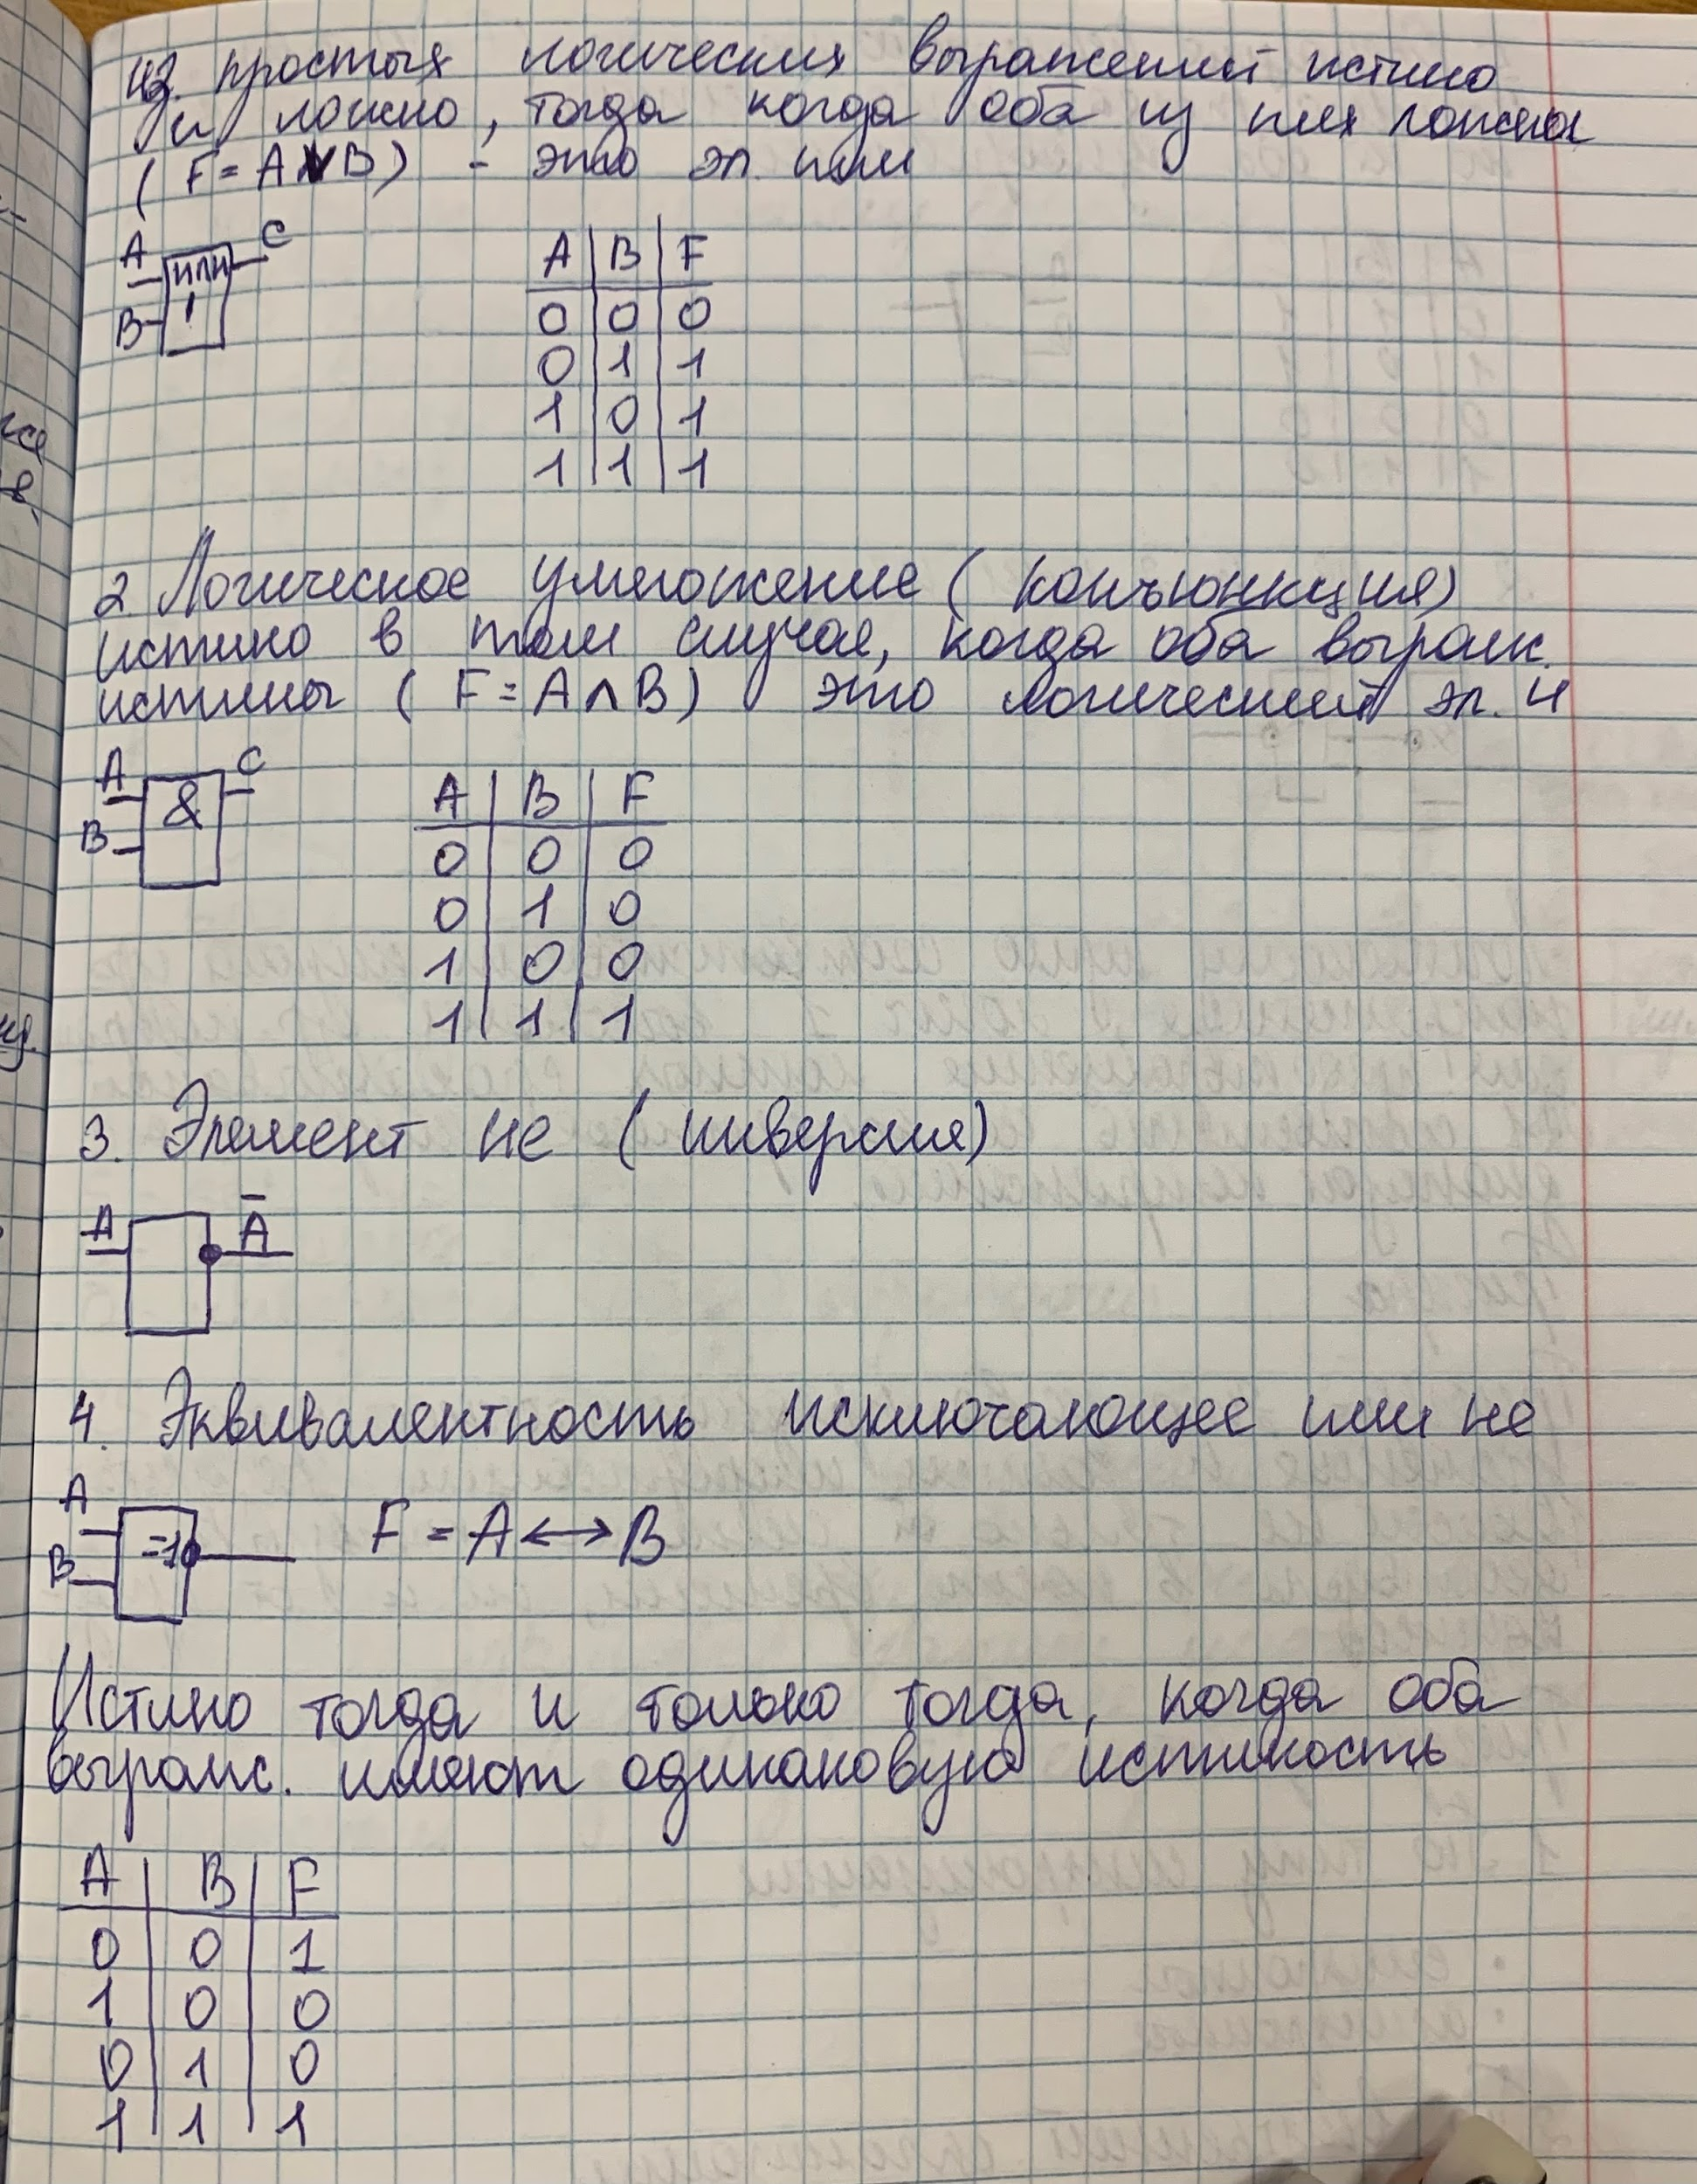 из простых логических выражений истино
и ложно, тогда когда оба из них ложны
( F = A V B ) - это эл. или
A ИЛИ C
B 1
A B F
0 0 0
0 1 1
1 0 1
1 1 1
2 Логическое умножение ( конъюнкция)
истино в том случае, когда оба выраж.
истины ( F = A ∧ B ) это логический эл. И
A & C
B
A B F
0 0 0
0 1 0
1 0 0
1 1 1
3. Элемент не ( инверсия)
A Ā
4. Эквивалентность исключающее или не
A
B =1 F = A ↔ B
Истино тогда и только тогда, когда оба
выраж. имеют одинаковую истиность
A B F
0 0 1
1 0 0
0 1 0
1 1 1